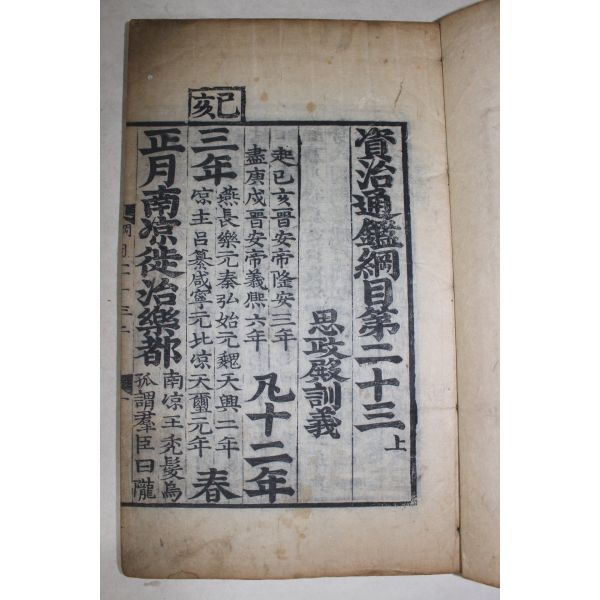 資治通鑑綱目第二十三 上
思政殿訓義
起己亥晉安帝隆安三年
盡庚戌晉安帝義熙六年 凡十二年
己亥
三年
燕長樂元秦弘始元魏天興二年
涼主呂纂咸寧元北涼天璽元年 春
正月南涼徙治樂都
南涼王禿髮烏
孤謂羣臣曰隴